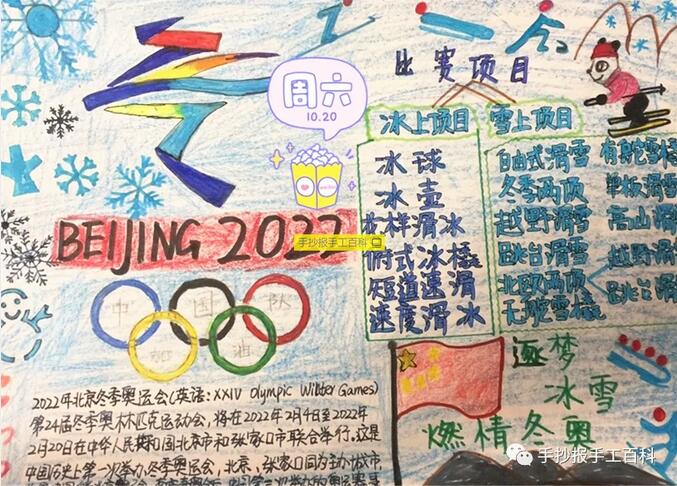 周六
10.20
比赛项目
冰上项目 雪上项目
冰球
冰壶
花样滑冰
俯式冰橇
短道速滑
速度滑冰
自由式滑雪 有舵雪橇
冬季两项 单板滑雪
越野滑雪 高山滑
跳台滑雪 越野滑
北欧两项 跳台滑
无舵雪橇
BEIJING 2022
手抄报手工百科
中国队
加油
2022年北京冬季奥运会(英语:XXIV Olympic Winter Games)
第24届冬季奥林匹克运动会,将在2022年2月4日至2022年
2月20日在中华人民共和国北京市和张家口市联合举行,这是
中国历史上第一次举办冬季奥运会,北京、张家口同为主办城市,
逐梦
冰雪
燃情冬奥
手抄报手工百科